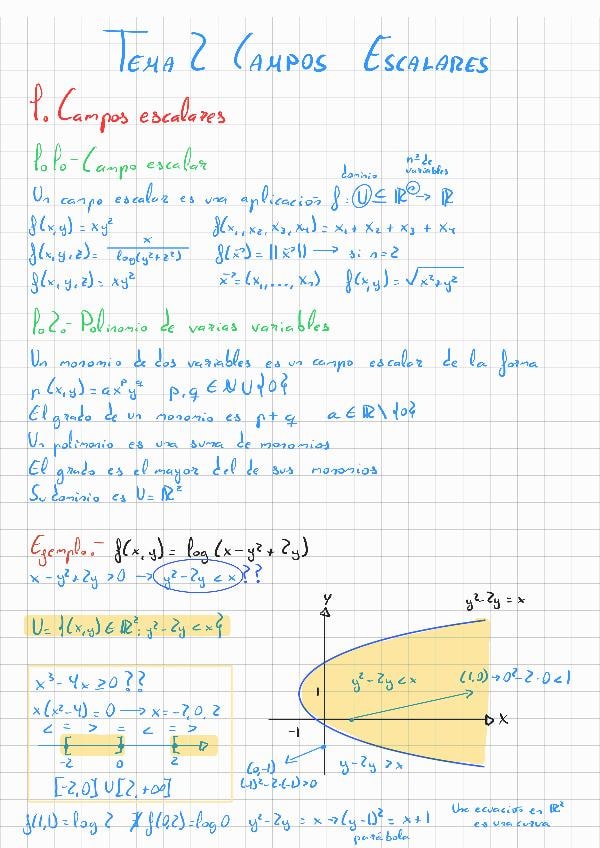 TEMA 2 CAMPOS ESCALARES
1. Campos escalares
1.1.- Campo escalar
dominio
nº de variables
Un campo escalar es una aplicación f: U ⊆ ℝⁿ → ℝ
f(x,y) = xy² f(x₁, x₂, x₃, x₄) = x₁ + x₂ + x₃ + x₄
f(x,y,z) = x / log(y²+z²) f(x⃗) = ||x⃗|| → si n=2
f(x,y,z) = xy² x⃗ = (x₁,...,xₙ) f(x,y) = √(x²+y²)
1.2.- Polinomio de varias variables
Un monomio de dos variables es un campo escalar de la forma
p(x,y) = ax^p y^q p,q ∈ ℕ ∪ {0}
El grado de un monomio es p+q a ∈ ℝ \ {0}
Un polimonio es una suma de monomios
El grado es el mayor del de sus monomios
Su dominio es U = ℝ²
Ejemplo.- f(x,y) = log(x-y²+2y)
x-y²+2y > 0 → y²-2y < x ??
U = {(x,y) ∈ ℝ² : y²-2y < x}
Y
y²-2y = x
y²-2y < x
(1,0) → 0²-2·0 < 1
1
X
-1
(0,-1)
(-1)²-2·(-1) > 0
y-2y > x
x³-4x ≥ 0 ??
x(x²-4) = 0 → x = -2, 0, 2
< = > = < = >
-2 0 2
[-2,0] ∪ [2,+∞)
f(1,1) = log 2 ∄ f(0,2) = log 0 y²-2y = x → (y-1)² = x+1
parábola
Una ecuación en ℝ²
es una curva